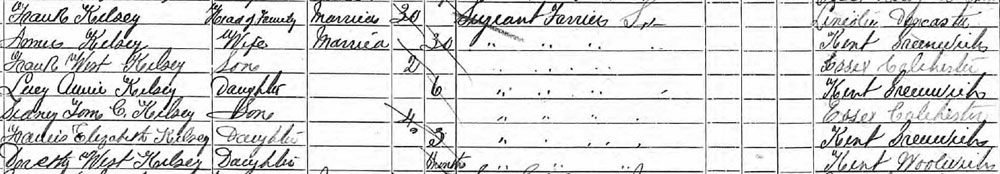 Frank Kelsey Head of Family Married 30 Sergeant Farrier Lincoln Doncaster
Kelsey Wife Married 30 " " " " Kent Greenwich
Frank West Kelsey Son 2 " " " " Essex Colchester
Lucy Annie Kelsey Daughter 6 " " " " Kent Greenwich
Sidney Tom C. Kelsey Son 4 " " " " Essex Colchester
Elizabeth Kelsey Daughter 3 " " " " Kent Greenwich
Dorothy West Kelsey Daughter months " " " " Kent Woolwich